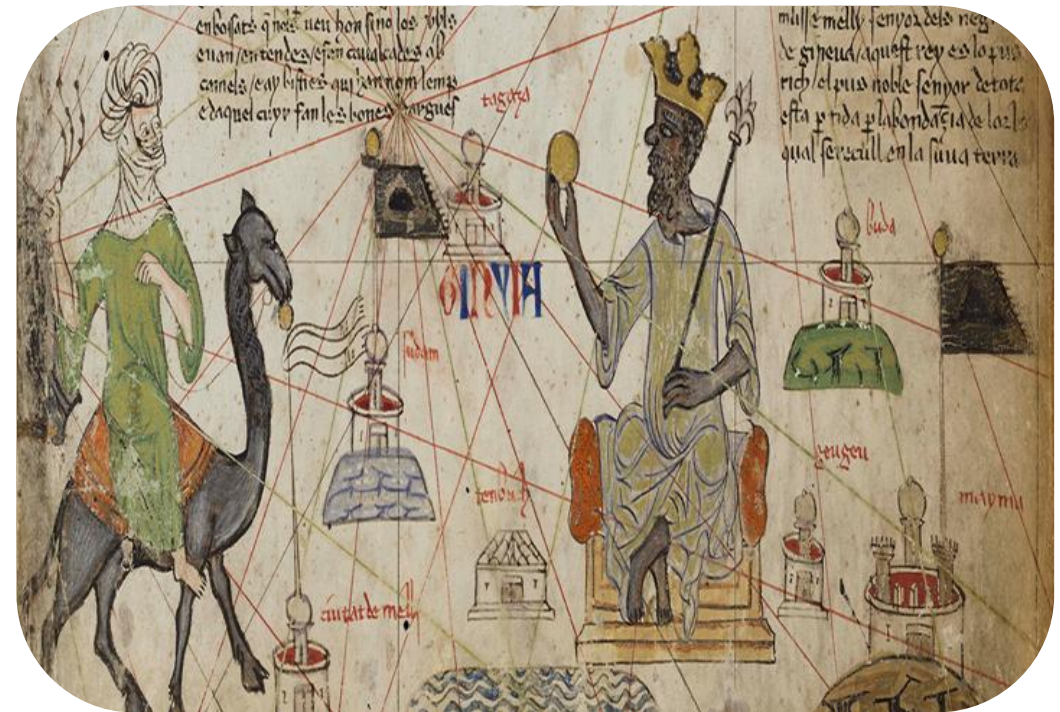 enbosats q̃ nols veu hom sino los ulls
e van en tendes e fan cavalcades ab
camels e ay bisties qui han nom lemp
e daquel cuyr fan les bones dargues
musse melly senyor dels neg
de gineua aquest rey es lo pus
rich el pus noble senyor de tota
esta ptida p labondaçia de lor lo
qual se recull en la suua terra
tagaza
buda
GINVIA
sudam
geugeu
tenbuch
mayma
ciutat de melly